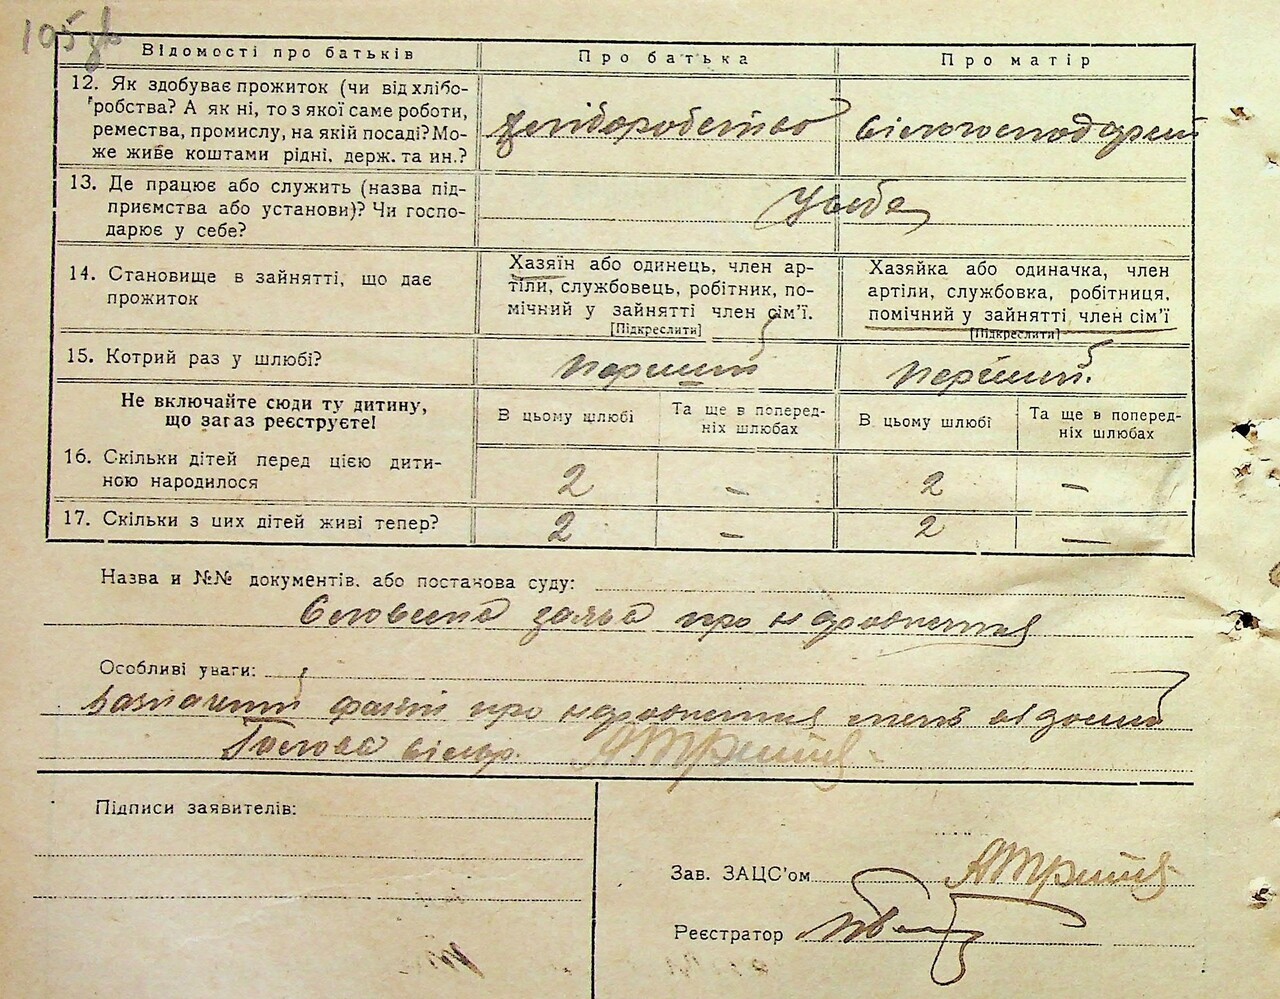 105 зв
Відомості про батьків
Про батька
Про матір
12. Як здобуває прожиток (чи від хлібо-
робства? А як ні, то з якої саме роботи,
ремества, промислу, на якій посаді? Мо-
же живе коштами рідні, держ. та ин.?
хліборобство
сільгосподарст
13. Де працює або служить (назва під-
приємства або установи)? Чи госпо-
дарює у себе?
У себе
14. Становище в зайнятті, що дає
прожиток
Хазяїн або одинець, член ар-
тіли, службовець, робітник, по-
мічний у зайнятті член сім'ї.
[Підкреслити]
Хазяйка або одиначка, член
артіли, службовка, робітниця,
помічний у зайнятті член сім'ї
[Підкреслити]
15. Котрий раз у шлюбі?
перший
перший
Не включайте сюди ту дитину,
що загаз реєструєте!
В цьому шлюбі
Та ще в поперед-
ніх шлюбах
В цьому шлюбі
Та ще в поперед-
ніх шлюбах
16. Скільки дітей перед цією дити-
ною народилося
2
–
2
–
17. Скільки з цих дітей живі тепер?
2
–
2
–
Назва и №№ документів, або постанова суду:
Словесна заява про народження
Особливі уваги:
Зазначений факт про народження мені відомий
Голова сільр.
Підписи заявителів:
Зав. ЗАЦС'ом
Реєстратор